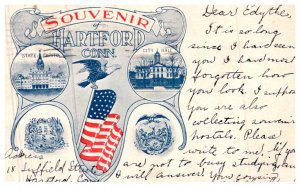 SOUVENIR
of
HARTFORD
CONN.
STATE CAPITOL
CITY HALL
Dear Edythe,
It is so long
since I had seen
you I had most
forgotten how
you look. I suppose
you are also
collecting souvenir
postals. Please
write to me. If you
are not to busy studying
I will answer you
Address
18 Suffield Street
Hartford Conn